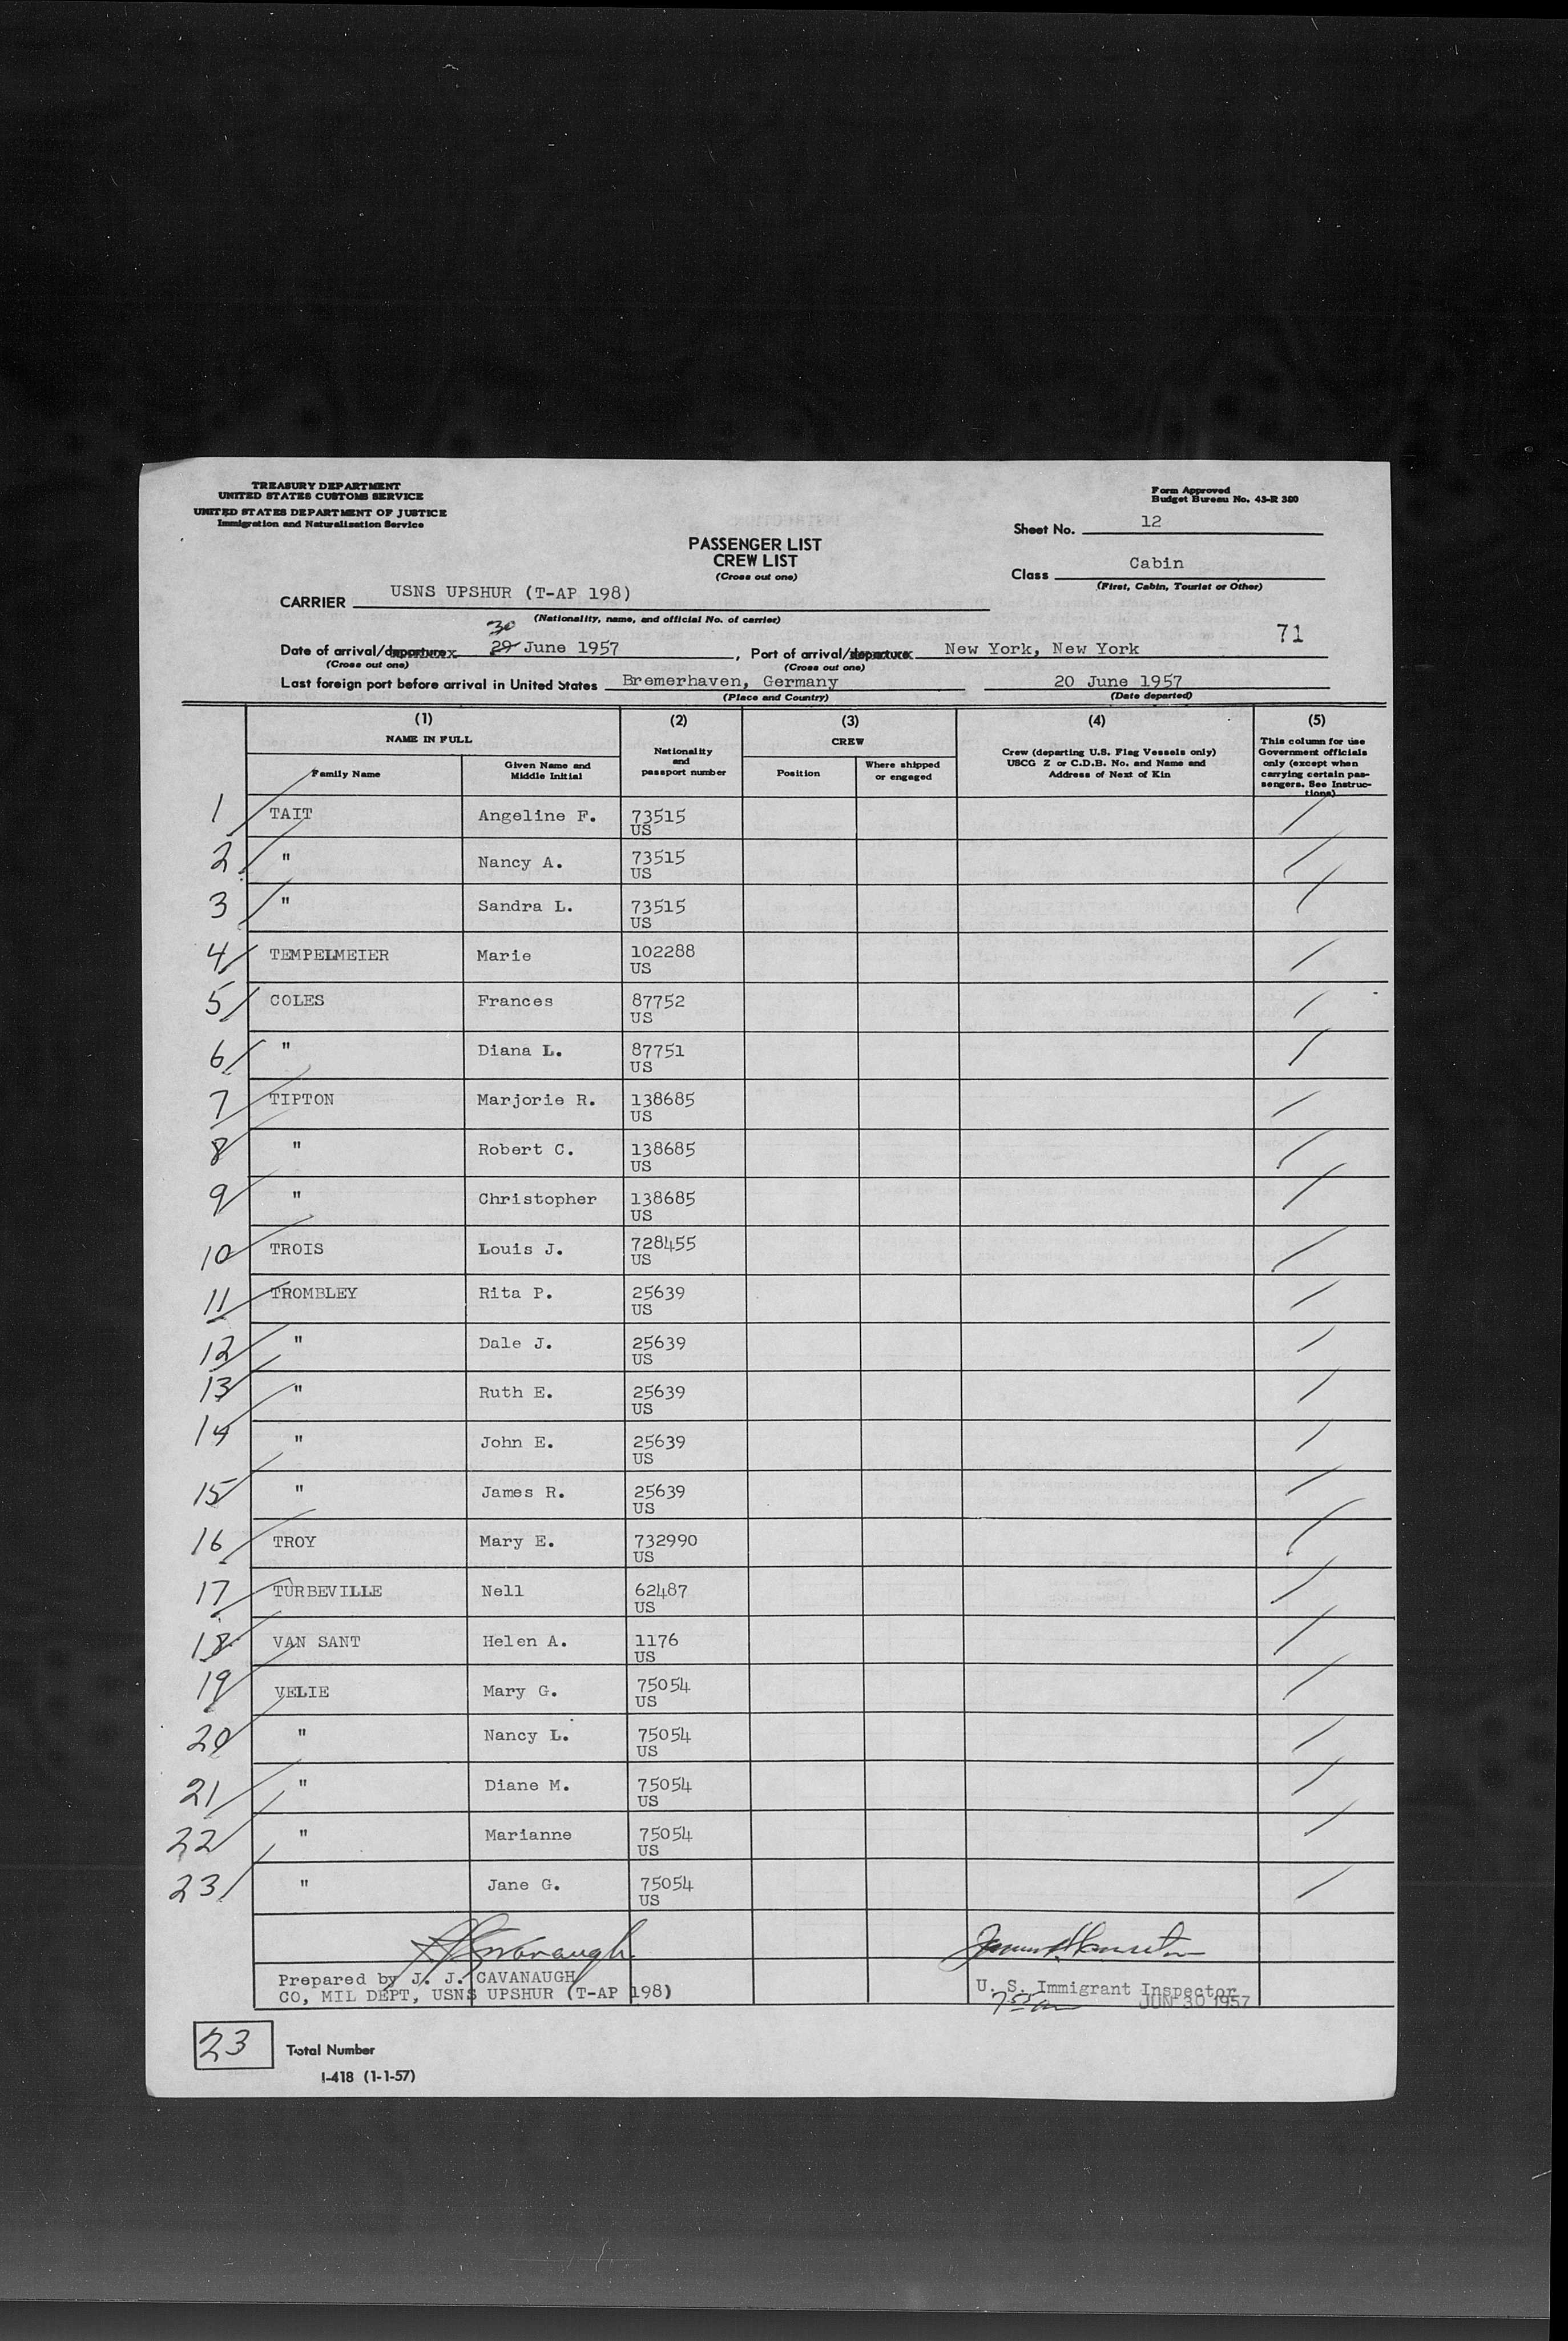 TREASURY DEPARTMENT
UNITED STATES CUSTOMS SERVICE
UNITED STATES DEPARTMENT OF JUSTICE
Immigration and Naturalization Service
Form Approved
Budget Bureau No. 43-R 360
Sheet No. 12
PASSENGER LIST
CREW LIST
(Cross out one)
Class Cabin
(First, Cabin, Tourist or Other)
CARRIER USNS UPSHUR (T-AP 198)
(Nationality, name, and official No. of carrier)
30
71
Date of arrival/departure 29 June 1957, Port of arrival/departure New York, New York
(Cross out one) (Cross out one)
Last foreign port before arrival in United States Bremerhaven, Germany 20 June 1957
(Place and Country) (Date departed)
(1) (2) (3) (4) (5)
NAME IN FULL
Family Name
Given Name and
Middle Initial
Nationality
and
passport number
CREW
Position
Where shipped
or engaged
Crew (departing U.S. Flag Vessels only)
USCG Z or C.D.B. No. and Name and
Address of Next of Kin
This column for use
Government officials
only (except when
carrying certain pas-
sengers. See Instruc-
tions)
1 TAIT Angeline F. 73515
US
2 " Nancy A. 73515
US
3 " Sandra L. 73515
US
4 TEMPELMEIER Marie 102288
US
5 COLES Frances 87752
US
6 " Diana L. 87751
US
7 TIPTON Marjorie R. 138685
US
8 " Robert C. 138685
US
9 " Christopher 138685
US
10 TROIS Louis J. 728455
US
11 TROMBLEY Rita P. 25639
US
12 " Dale J. 25639
US
13 " Ruth E. 25639
US
14 " John E. 25639
US
15 " James R. 25639
US
16 TROY Mary E. 732990
US
17 TURBEVILLE Nell 62487
US
18 VAN SANT Helen A. 1176
US
19 VELIE Mary G. 75054
US
20 " Nancy L. 75054
US
21 " Diane M. 75054
US
22 " Marianne 75054
US
23 " Jane G. 75054
US
Prepared by J. J. CAVANAUGH
CO, MIL DEPT, USNS UPSHUR (T-AP 198)
U. S. Immigrant Inspector
JUN 30 1957
23 Total Number
I-418 (1-1-57)